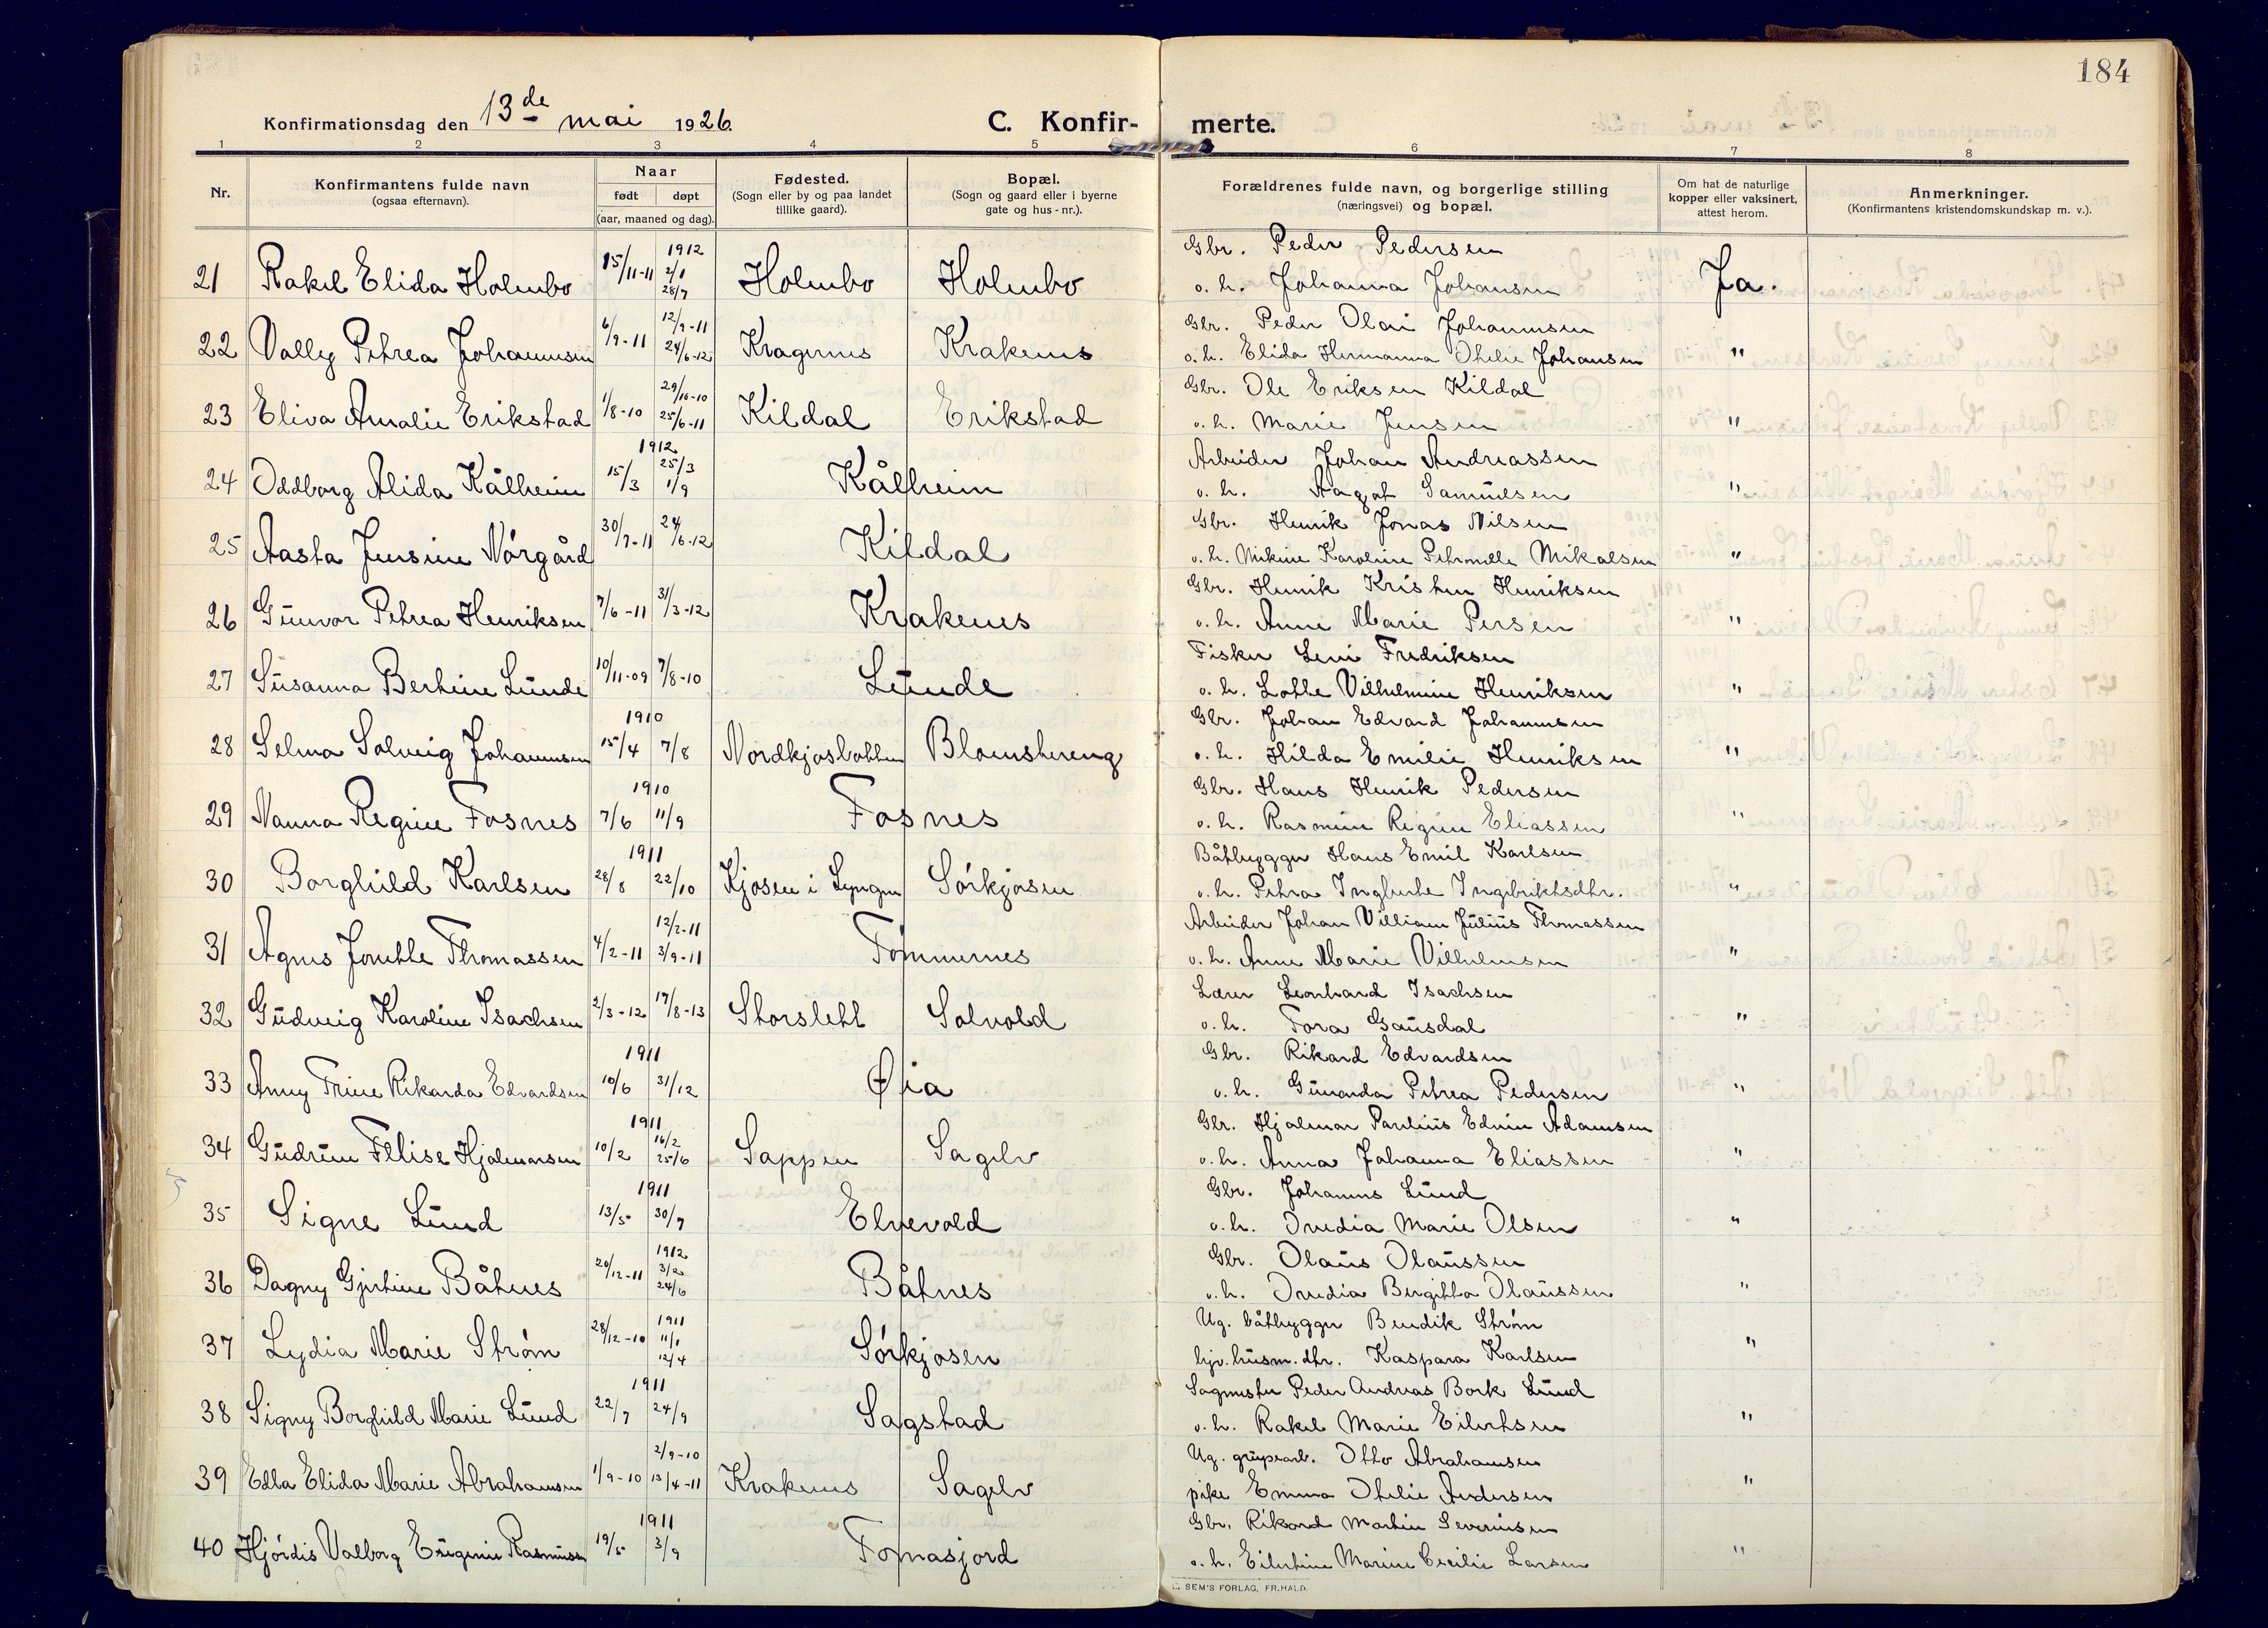 184
Konfirmationsdag den 13de mai 1926.
C. Konfir-merte.
1 2 3 4 5 6 7 8
Nr.
Konfirmantens fulde navn
(ogsaa efternavn).
Naar
født døpt
(aar, maaned og dag).
Fødested.
(Sogn eller by og paa landet
tillike gaard).
Bopæl.
(Sogn og gaard eller i byerne
gate og hus-nr.).
Forældrenes fulde navn, og borgerlige stilling
(næringsvei) og bopæl.
Om hat de naturlige
kopper eller vaksinert,
attest herom.
Anmerkninger.
(Konfirmantens kristendomskundskap m. v.).
1912
Gbr. Peder Pedersen
21 Rakel Elida Holmbo 15/11-11 2/1 28/7 Holmbo Holmbo o. h. Johanna Johansen Ja.
12/9-11 Gbr. Peder Olai Johannesen
22 Vally Petrea Johannesen 6/9-11 24/6-12 Kragernes Krakenes o. h. Elida Hermanna Othelie Johansen "
29/10-10 Gbr. Ole Eriksen Kildal
23 Eliva Amalie Erikstad 1/8-10 25/6-11 Kildal Erikstad o. h. Marie Jensen "
1912 Arbeider Johan Andreassen
24 Oddborg Alida Kålheim 15/3 25/3 1/9 Kålheim o. h. Aagot Samuelsen "
Gbr. Henrik Jonas Nilsen
25 Aasta Jensine Nórgård 30/7-11 24/6-12 Kildal o. h. Mikine Karoline Petronelle Mikalsen "
Gbr. Henrik Kristen Henriksen
26 Gunvor Petrea Henriksen 7/6-11 31/3-12 Krakenes o. h. Anne Marie Persen "
Fisker Leni Fredriksen
27 Susanna Berthine Lunde 10/11-09 7/8-10 Lunde o. h. Lotte Vilhelmine Henriksen "
1910 Gbr. Johan Edvard Johannesen
28 Selma Solveig Johannesen 15/4 7/8 Nordkjosbotten Blomstereng o. h. Hilda Emilie Henriksen "
1910 Gbr. Hans Henrik Pedersen
29 Nanna Regine Fosnes 7/6 11/9 Fosnes o. h. Rasmine Regine Eliassen "
1911 Båtbygger Hans Emil Karlsen
30 Borghild Karlsen 28/8 22/10 Kjosen i Lyngen Sórkjosen o. h. Petra Ingberte Ingebriktsdtr. "
12/2-11 Arbeider Johan Villiam Julius Thomassen
31 Agnes Jonette Thomassen 4/2-11 3/9-11 Tómmernes o. h. Anne Marie Vilhelmsen "
Lærer Leonhard Isachsen
32 Gudveig Karoline Isachsen 2/3-12 17/8-13 Storslett Solvold o. h. Tora Gausdal "
1911 Gbr. Rikard Edvardsen
33 Anny Trine Rikarda Edvardsen 10/6 31/12 Øia o. h. Gunarda Petrea Pedersen "
1911 Gbr. Hjalmar Paulius Edvin Adamsen
34 Gudrun Elise Hjalmarsen 10/2 16/2 25/6 Sappen Sagelv o. h. Anna Johanna Eliassen "
1911 Gbr. Johannes Lund
35 Signe Lund 13/5 30/7 Elvevold o. h. Ovedia Marie Olsen "
1912 Gbr. Olaus Olaussen
36 Dagny Gjertine Båtnes 20/12-11 3/2 24/6 Båtnes o. h. Ovedia Bergitta Olaussen "
1911 Ug. båtbygger Bendik Strøm
37 Lydia Marie Strøm 28/12-10 11/1 12/4 Sórkjosen hjv. husm. dtr. Kaspara Karlsen "
1911 Sagmester Peder Andreas Bork Lund
38 Signy Borghild Marie Lund 22/7 24/9 Sagstad o. h. Rakel Marie Eilertsen "
2/9-10 Ug. Otto Abrahamsen
39 Edla Elida Marie Abrahamsen 1/9-10 13/4-11 Krakenes Sagelv pike Emma Othelie Andersen "
1911 Gbr. Rikard Martin Severinsen
40 Hjórdis Valborg Eugenie Rasmuss 19/5 3/9 Tomasjord o. h. Eilertine Marine Cecilie Larsen "
SEM'S FORLAG, FR.HALD.